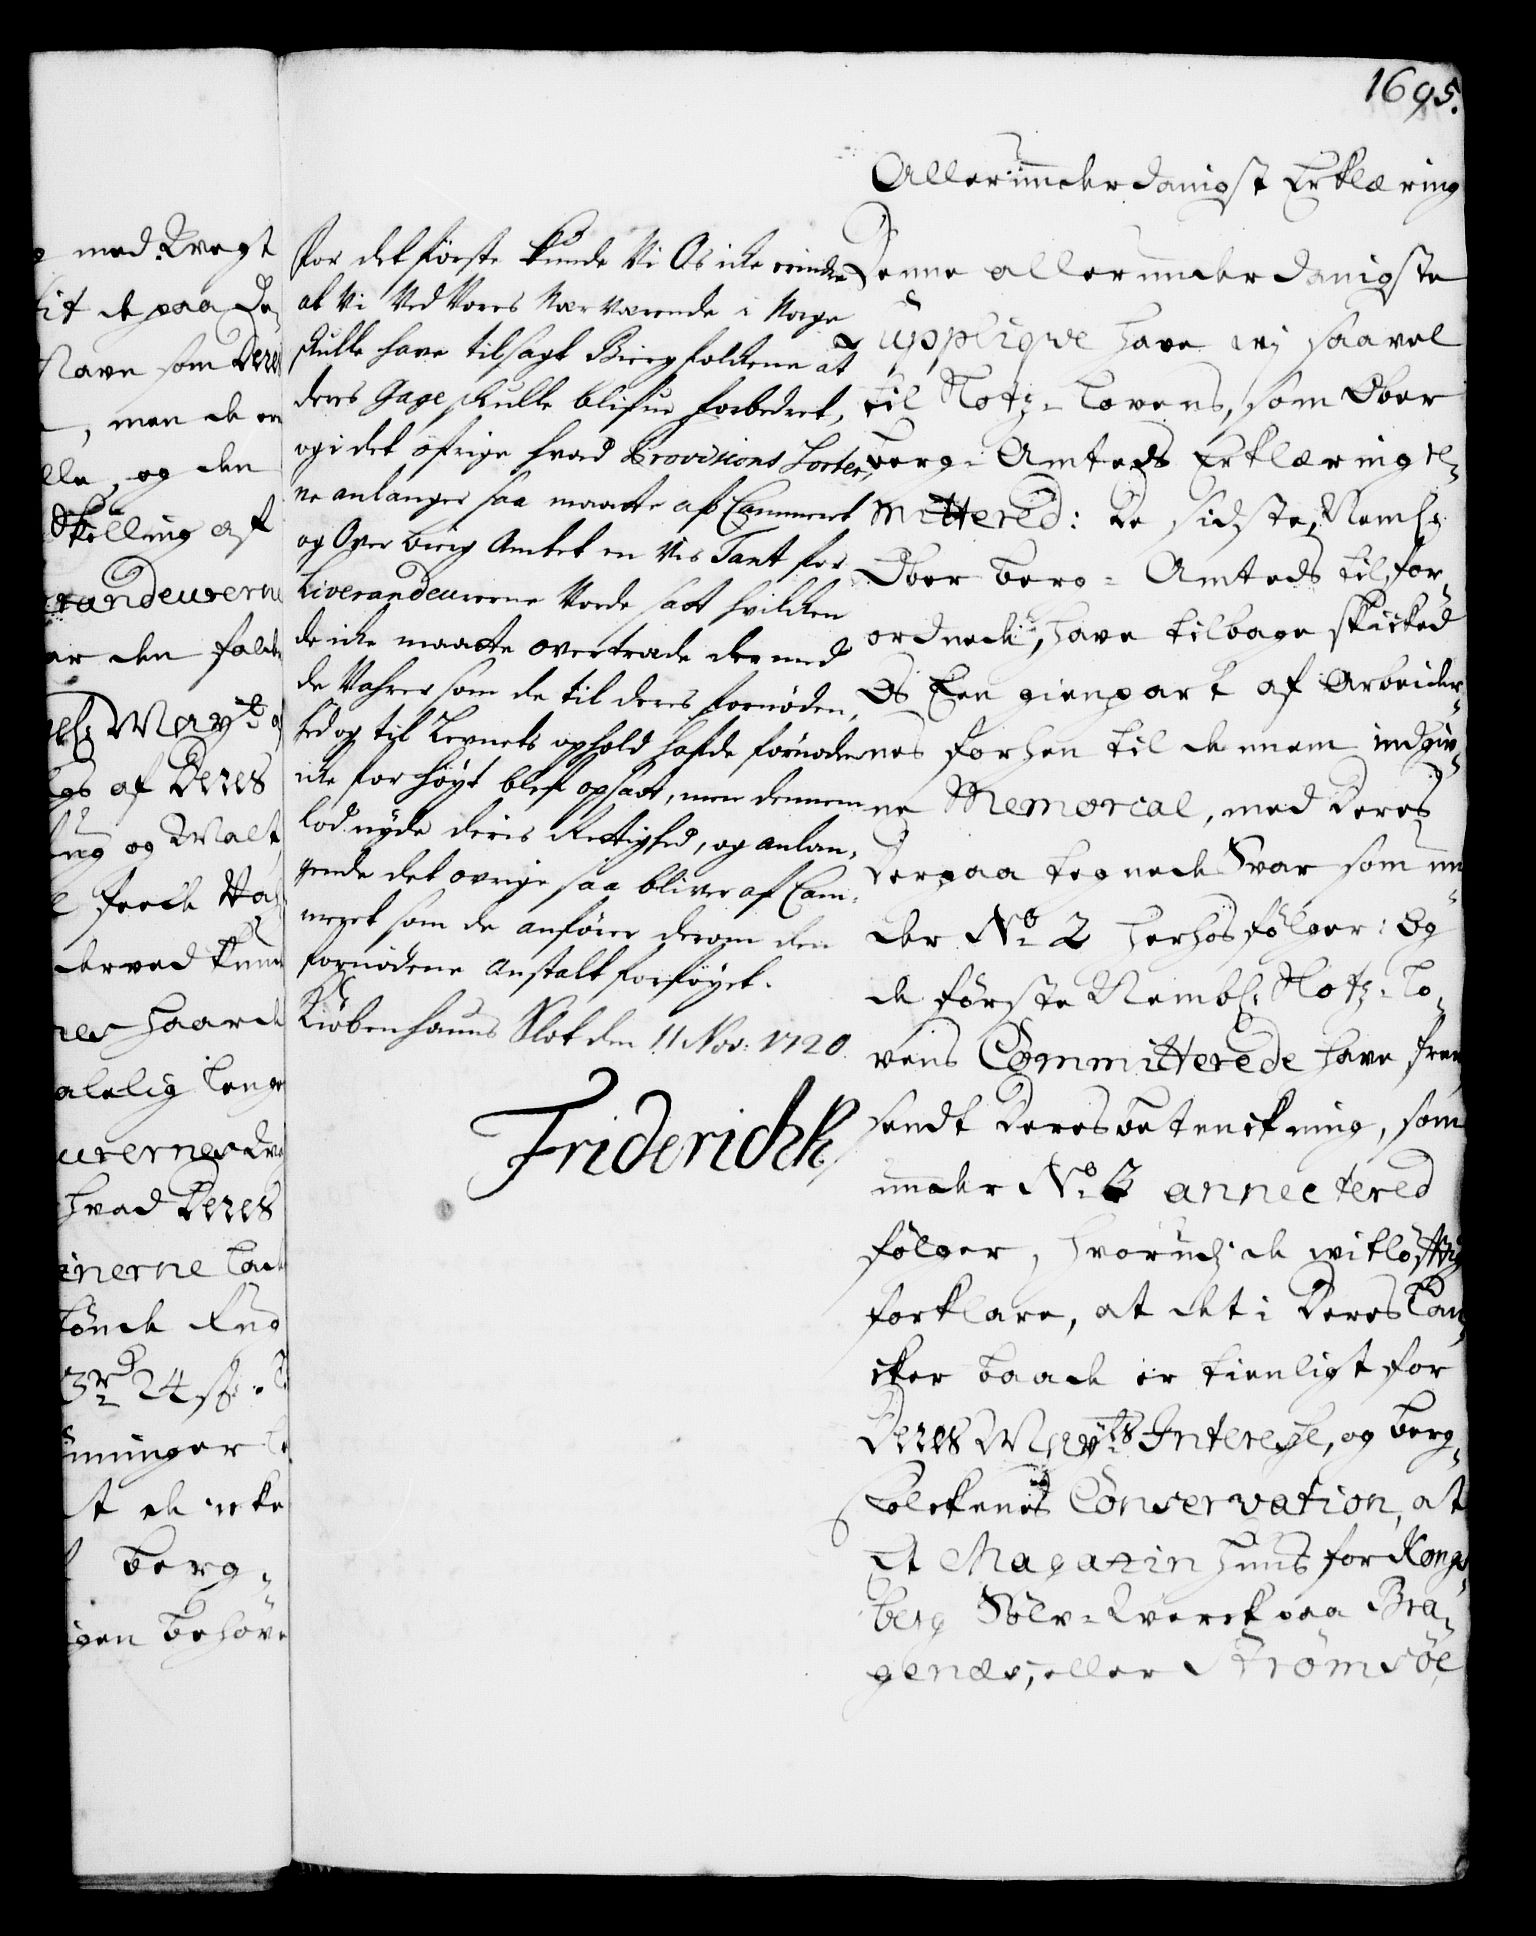 1695.
med Qvegt
it de paa De,
Nave som Deres
, men de er
lle, og den
Skilling af
randeurerne
ar den fald
May.tt
af Deres
ng og Malt,
derved kun
haarde
alelig lenge
urernes
hvad Deres
inerne
tønde Rug
3 rd 24 s.
minger
st de icke
berg-
igen behøve
For det förste kunde Vi Os icke erindre
at Vi Ved Vores Nær Værende i Norge
skulle have tilsagt Biergfolckene at
deres Gage skulle blifue forbedret,
og i det öfrige hvad Provisions Sorter,,
ne anlanger saa maatte af Cammeret
og Over bierg Amtet en Vis Taxt for
Liverandeurerne Vorde satt hvilcken
de icke maatte overtræde der med
de Vahrer som de til deres fornöden,,
hed og til Levnets ophold hafde fornöden
icke for höyt blef opsatt, men dennem
lod nyde deris Rettighed, og anlan,,
gende det ovrige saa bliver af Cam,,
meret som de anförer derom den
fornödene Anstalt forföyet.
Kiöbenhauns Slot den 11 Nov: 1720.
Friderich R
Allerunderdanigst Erklæring
Denne allerunderdanigste
Supplique have wj saavel
til Slotz-Lovens, som Ober
berg-Amtets Erklæring re,,
mittered: De sidste, Nemlig
Ober berg-Amtets tilfor,,
ordnede, have tilbage skicked
Os Een gienpart af Arbeider,,
nes forhen til dennem indgiv,,
ne Memorial, med Deres
Derpaa tegnede Svar som un,,
der No. 2 herhos følger: Og
de første Nembl: Slotz-Lo,,
vens Committerede have frem,,
sendt Deres betenckning, som
under No. 3 annectered
følger, hvorudj de witløfftig
forklare, at det i Deres Tan,,
cker baade er tienligt for
Deres May.ts Interesse, og berg,,
folckenes Conservation, at
et Magazin huus for Kongs,,
berg Sølv-Werck paa Bra,,
genæs, eller Strømsøe,